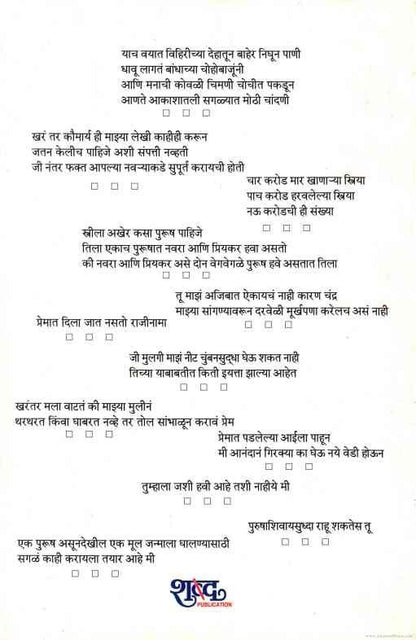 याच वयात विहिरीच्या देहातून बाहेर निघून पाणी
धावू लागतं बांधाच्या चोहोबाजूंनी
आणि मनाची कोवळी चिमणी चोचीत पकडून
आणते आकाशातली सगळ्यात मोठी चांदणी
□ □ □
खरं तर कौमार्य ही माझ्या लेखी काहीही करून
जतन केलीच पाहिजे अशी संपत्ती नव्हती
जी नंतर फक्त आपल्या नवऱ्याकडे सुपूर्त करायची होती
□ □ □
चार करोड मार खाणाऱ्या स्त्रिया
पाच करोड हरवलेल्या स्त्रिया
नऊ करोडची ही संख्या
□ □ □
स्त्रीला अखेर कसा पुरूष पाहिजे
तिला एकाच पुरूषात नवरा आणि प्रियकर हवा असतो
की नवरा आणि प्रियकर असे दोन वेगवेगळे पुरूष हवे असतात तिला
□ □ □
तू माझं अजिबात ऐकायचं नाही कारण चंद्र
माझ्या सांगण्यावरून दरवेळी मूर्खपणा करेलच असं नाही
□ □ □
प्रेमात दिला जात नसतो राजीनामा
□ □ □
जी मुलगी माझं नीट चुंबनसुद्धा घेऊ शकत नाही
तिच्या याबाबतीत किती इयत्ता झाल्या आहेत
□ □ □
खरंतर मला वाटतं की माझ्या मुलीनं
थरथरत किंवा घाबरत नव्हे तर तोल सांभाळून करावं प्रेम
□ □ □
प्रेमात पडलेल्या आईला पाहून
मी आनंदानं गिरक्या का घेऊ नये वेडी होऊन
□ □ □
तुम्हाला जशी हवी आहे तशी नाहीये मी
□ □ □
पुरुषाशिवायसुध्दा राहू शकतेस तू
□ □ □
एक पुरूष असूनदेखील एक मूल जन्माला घालण्यासाठी
सगळं काही करायला तयार आहे मी
□ □ □
शब्द
PUBLICATION